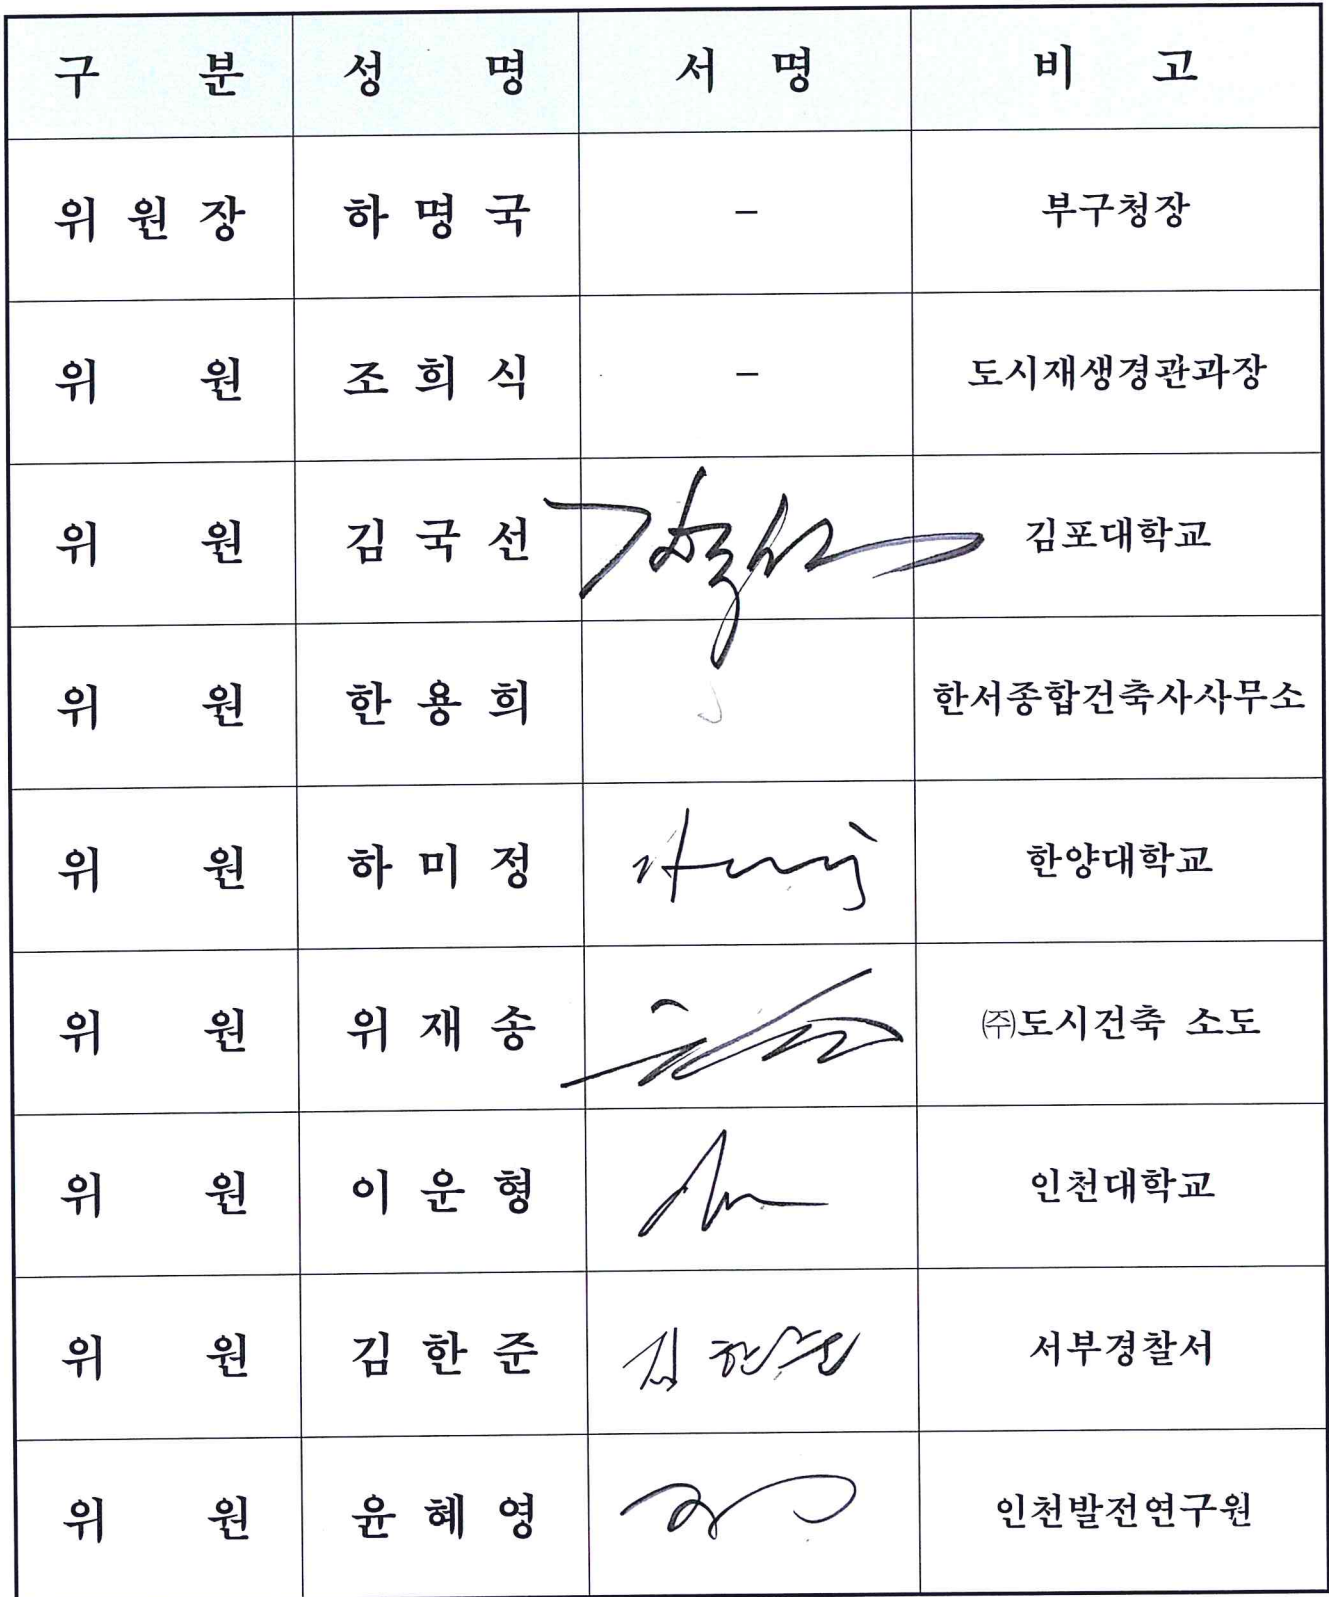 구 분 성 명 서 명 비 고
위 원 장 하 명 국 – 부구청장
위 원 조 희 식 – 도시재생경관과장
위 원 김 국 선 김포대학교
위 원 한 용 희 한서종합건축사사무소
위 원 하 미 정 한양대학교
위 원 위 재 송 ㈜도시건축 소도
위 원 이 운 형 인천대학교
위 원 김 한 준 김한준 서부경찰서
위 원 윤 혜 영 인천발전연구원